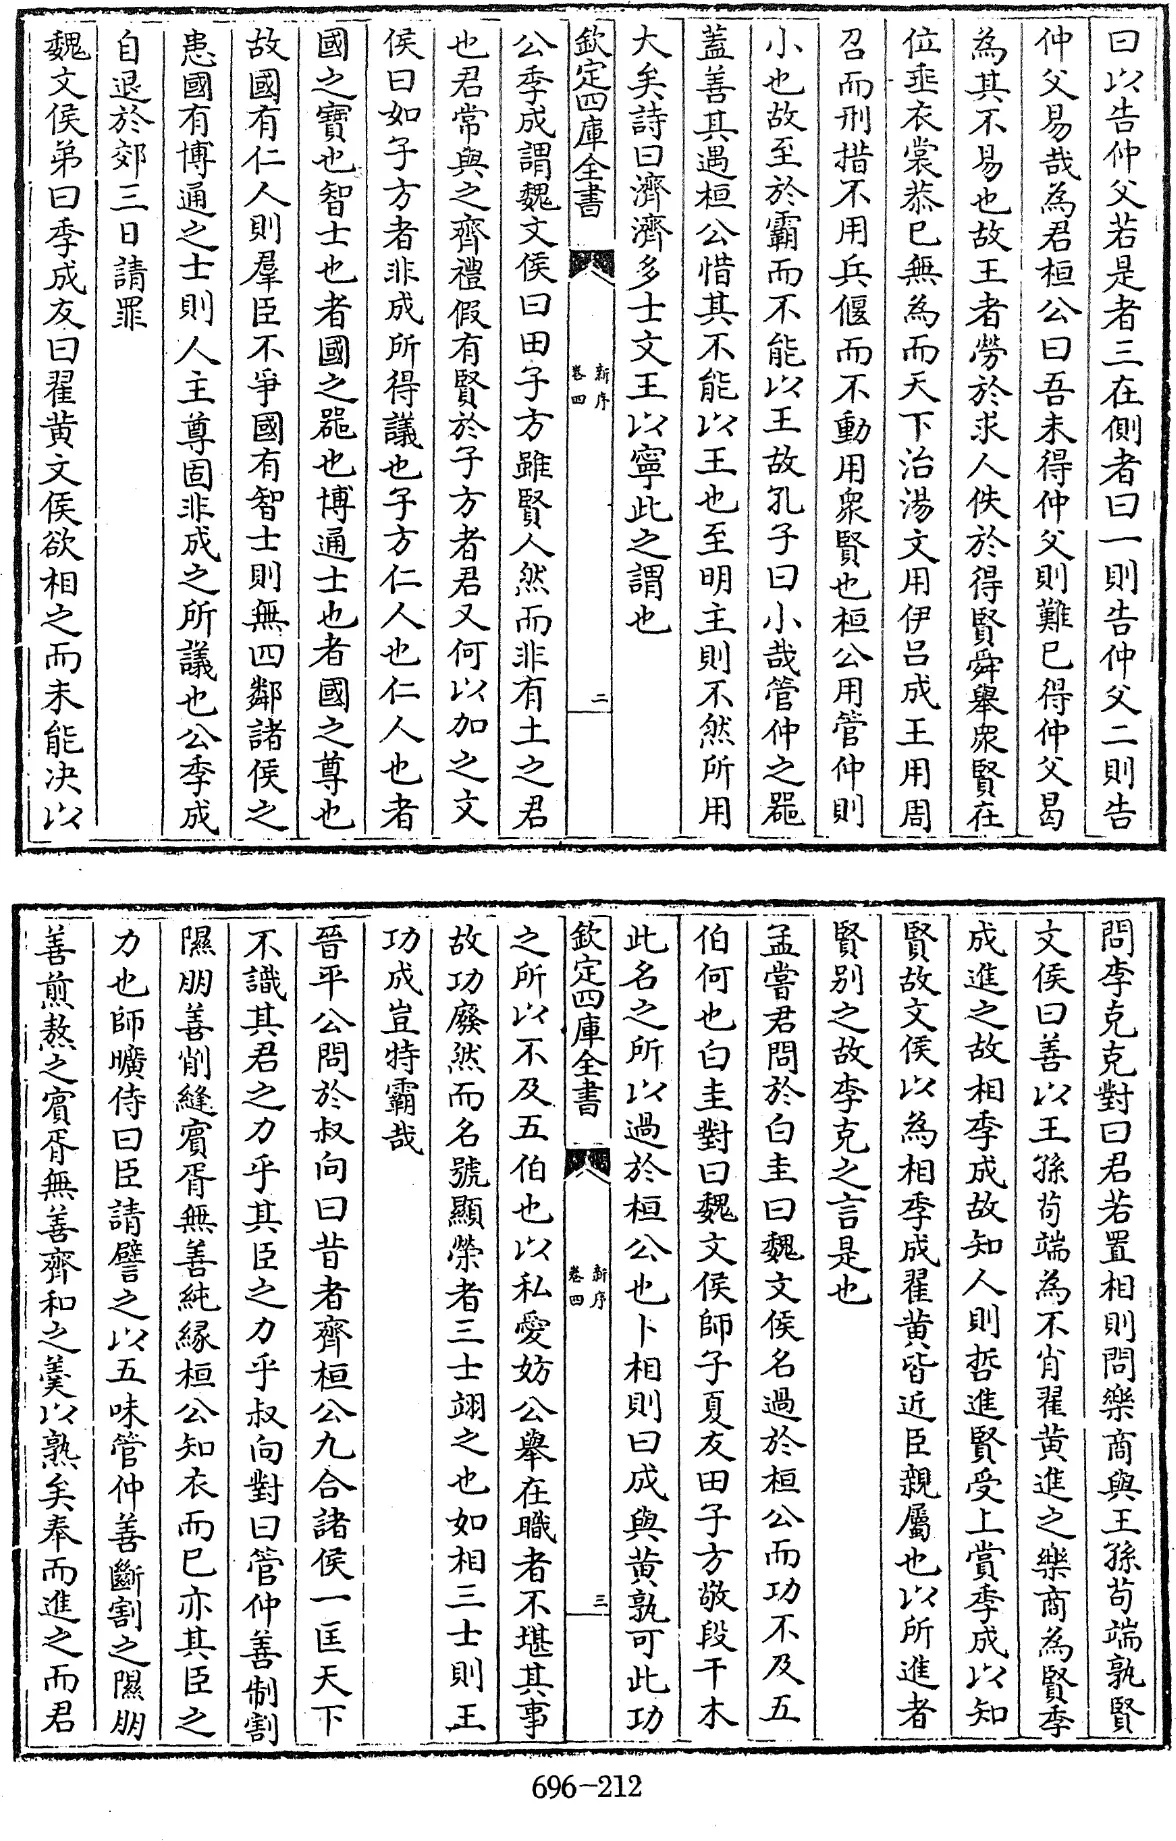 曰以告仲父若是者三在側者曰一則告仲父二則告
仲父易哉為君桓公曰吾未得仲父則難已得仲父曷
為其不易也故王者勞於求人佚於得賢舜舉衆賢在
位垂衣裳恭已無為而天下治湯文用伊呂成王用周
召而刑措不用兵偃而不動用衆賢也桓公用管仲則
小也故至於霸而不能以王故孔子曰小哉管仲之器
蓋善其遇桓公惜其不能以王也至明主則不然所用
大矣詩曰濟濟多士文王以寧此之謂也
欽定四庫全書
新序
卷四
二
公季成謂魏文侯曰田子方雖賢人然而非有土之君
也君常與之齊禮假有賢於子方者君又何以加之文
侯曰如子方者非成所得議也子方仁人也仁人也者
國之寶也智士也者國之器也博通士也者國之尊也
故國有仁人則羣臣不爭國有智士則無四鄰諸侯之
患國有博通之士則人主尊固非成之所議也公季成
自退於郊三日請罪
魏文侯弟曰季成友曰翟黄文侯欲相之而未能决以
問李克克對曰君若置相則問樂商與王孫茍端孰賢
文侯曰善以王孫茍端為不肖翟黄進之樂商為賢季
成進之故相季成故知人則哲進賢受上賞季成以知
賢故文侯以為相季成翟黄皆近臣親屬也以所進者
賢别之故李克之言是也
孟嘗君問於白圭曰魏文侯名過於桓公而功不及五
伯何也白圭對曰魏文侯師子夏友田子方敬段干木
此名之所以過於桓公也卜相則曰成與黄孰可此功
欽定四庫全書
新序
卷四
三
之所以不及五伯也以私愛妨公舉在職者不堪其事
故功廢然而名號顯榮者三士翊之也如相三士則王
功成豈特霸哉
晉平公問於叔向曰昔者齊桓公九合諸侯一匡天下
不識其君之力乎其臣之力乎叔向對曰管仲善制割
隰朋善削縫賓胥無善純縁桓公知衣而已亦其臣之
力也師曠侍曰臣請譬之以五味管仲善斷割之隰朋
善煎熬之賓胥無善齊和之羮以熟矣奉而進之而君
696-212